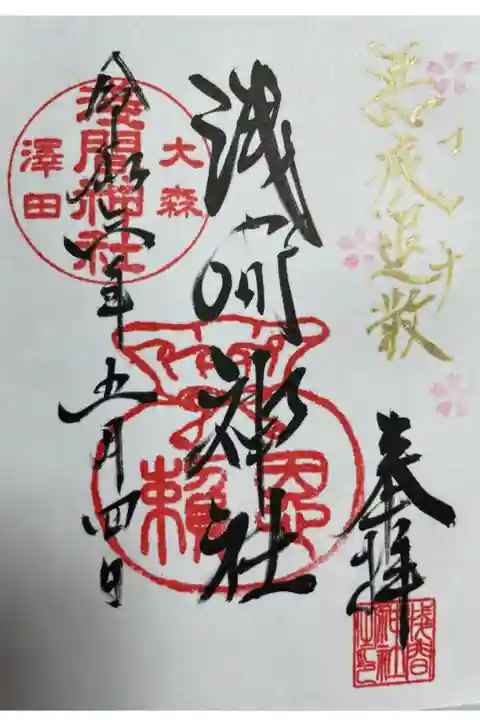 悪疫退散
奉拝
浅間神社之印
浅間神社
恩賴
大森
淺間神社
澤田
令和 年五月四日